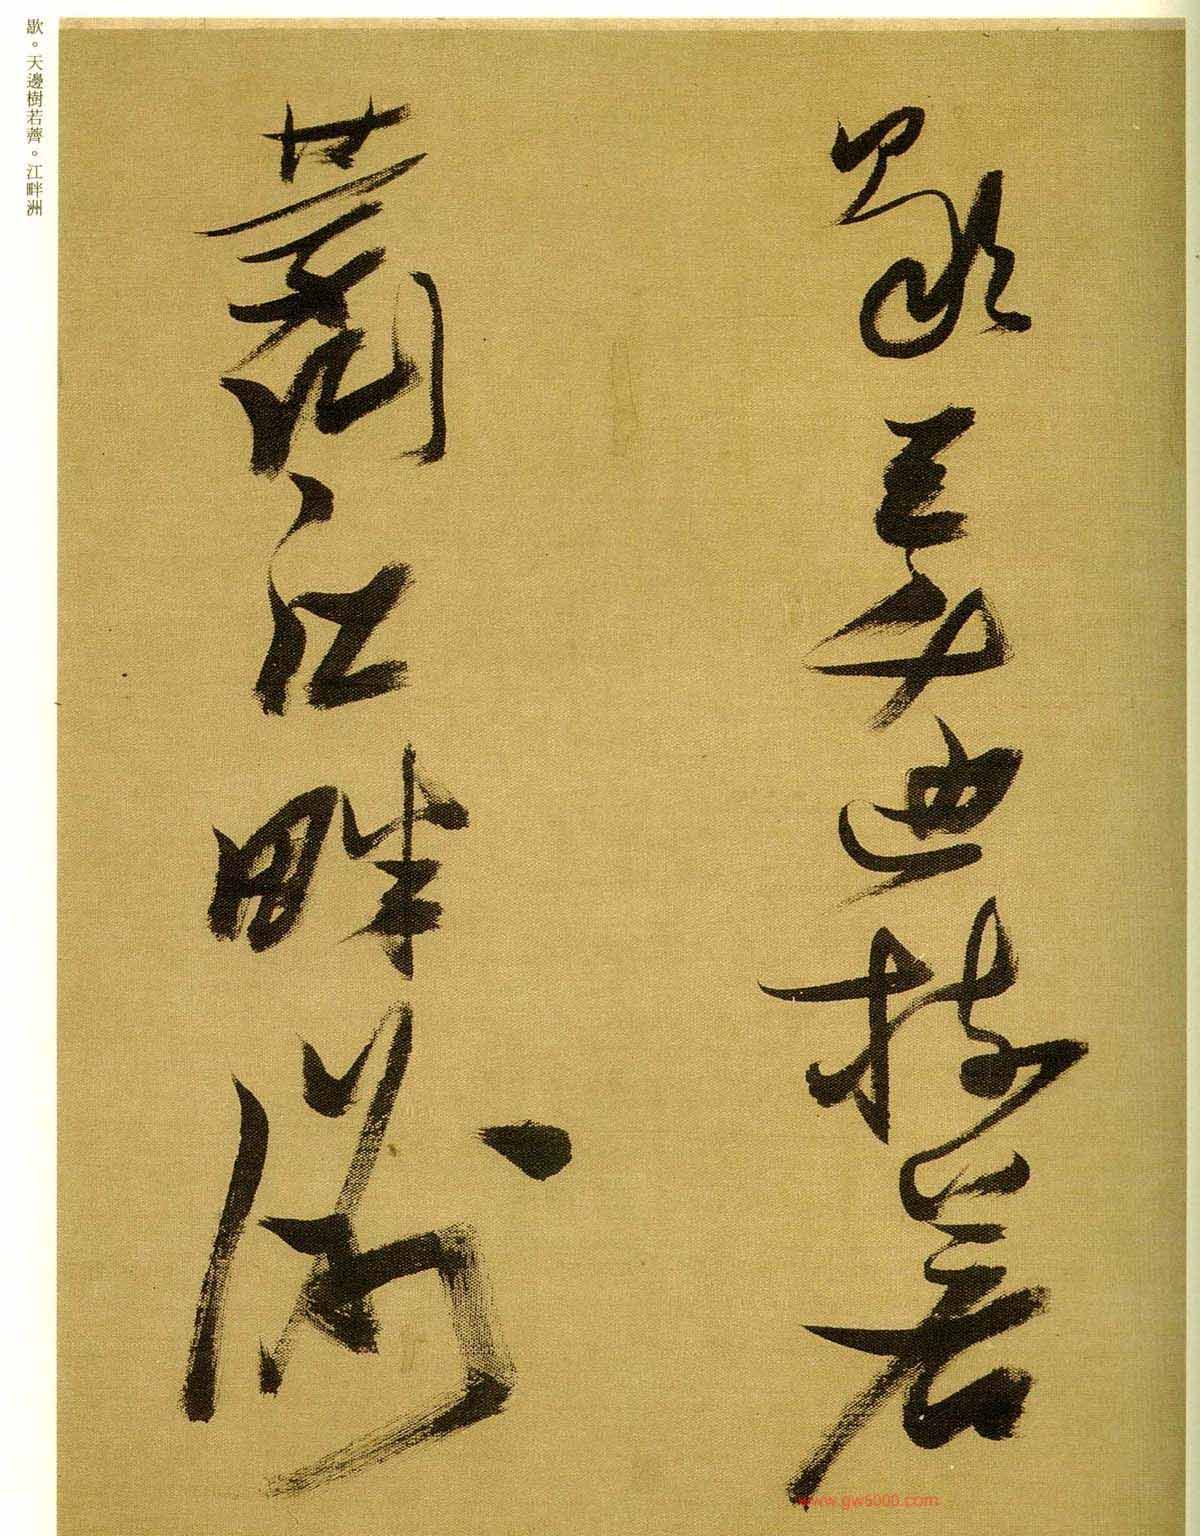 歇天邊樹若
薺江畔洲
歇。天邊樹若薺。江畔洲
www.gw5000.com